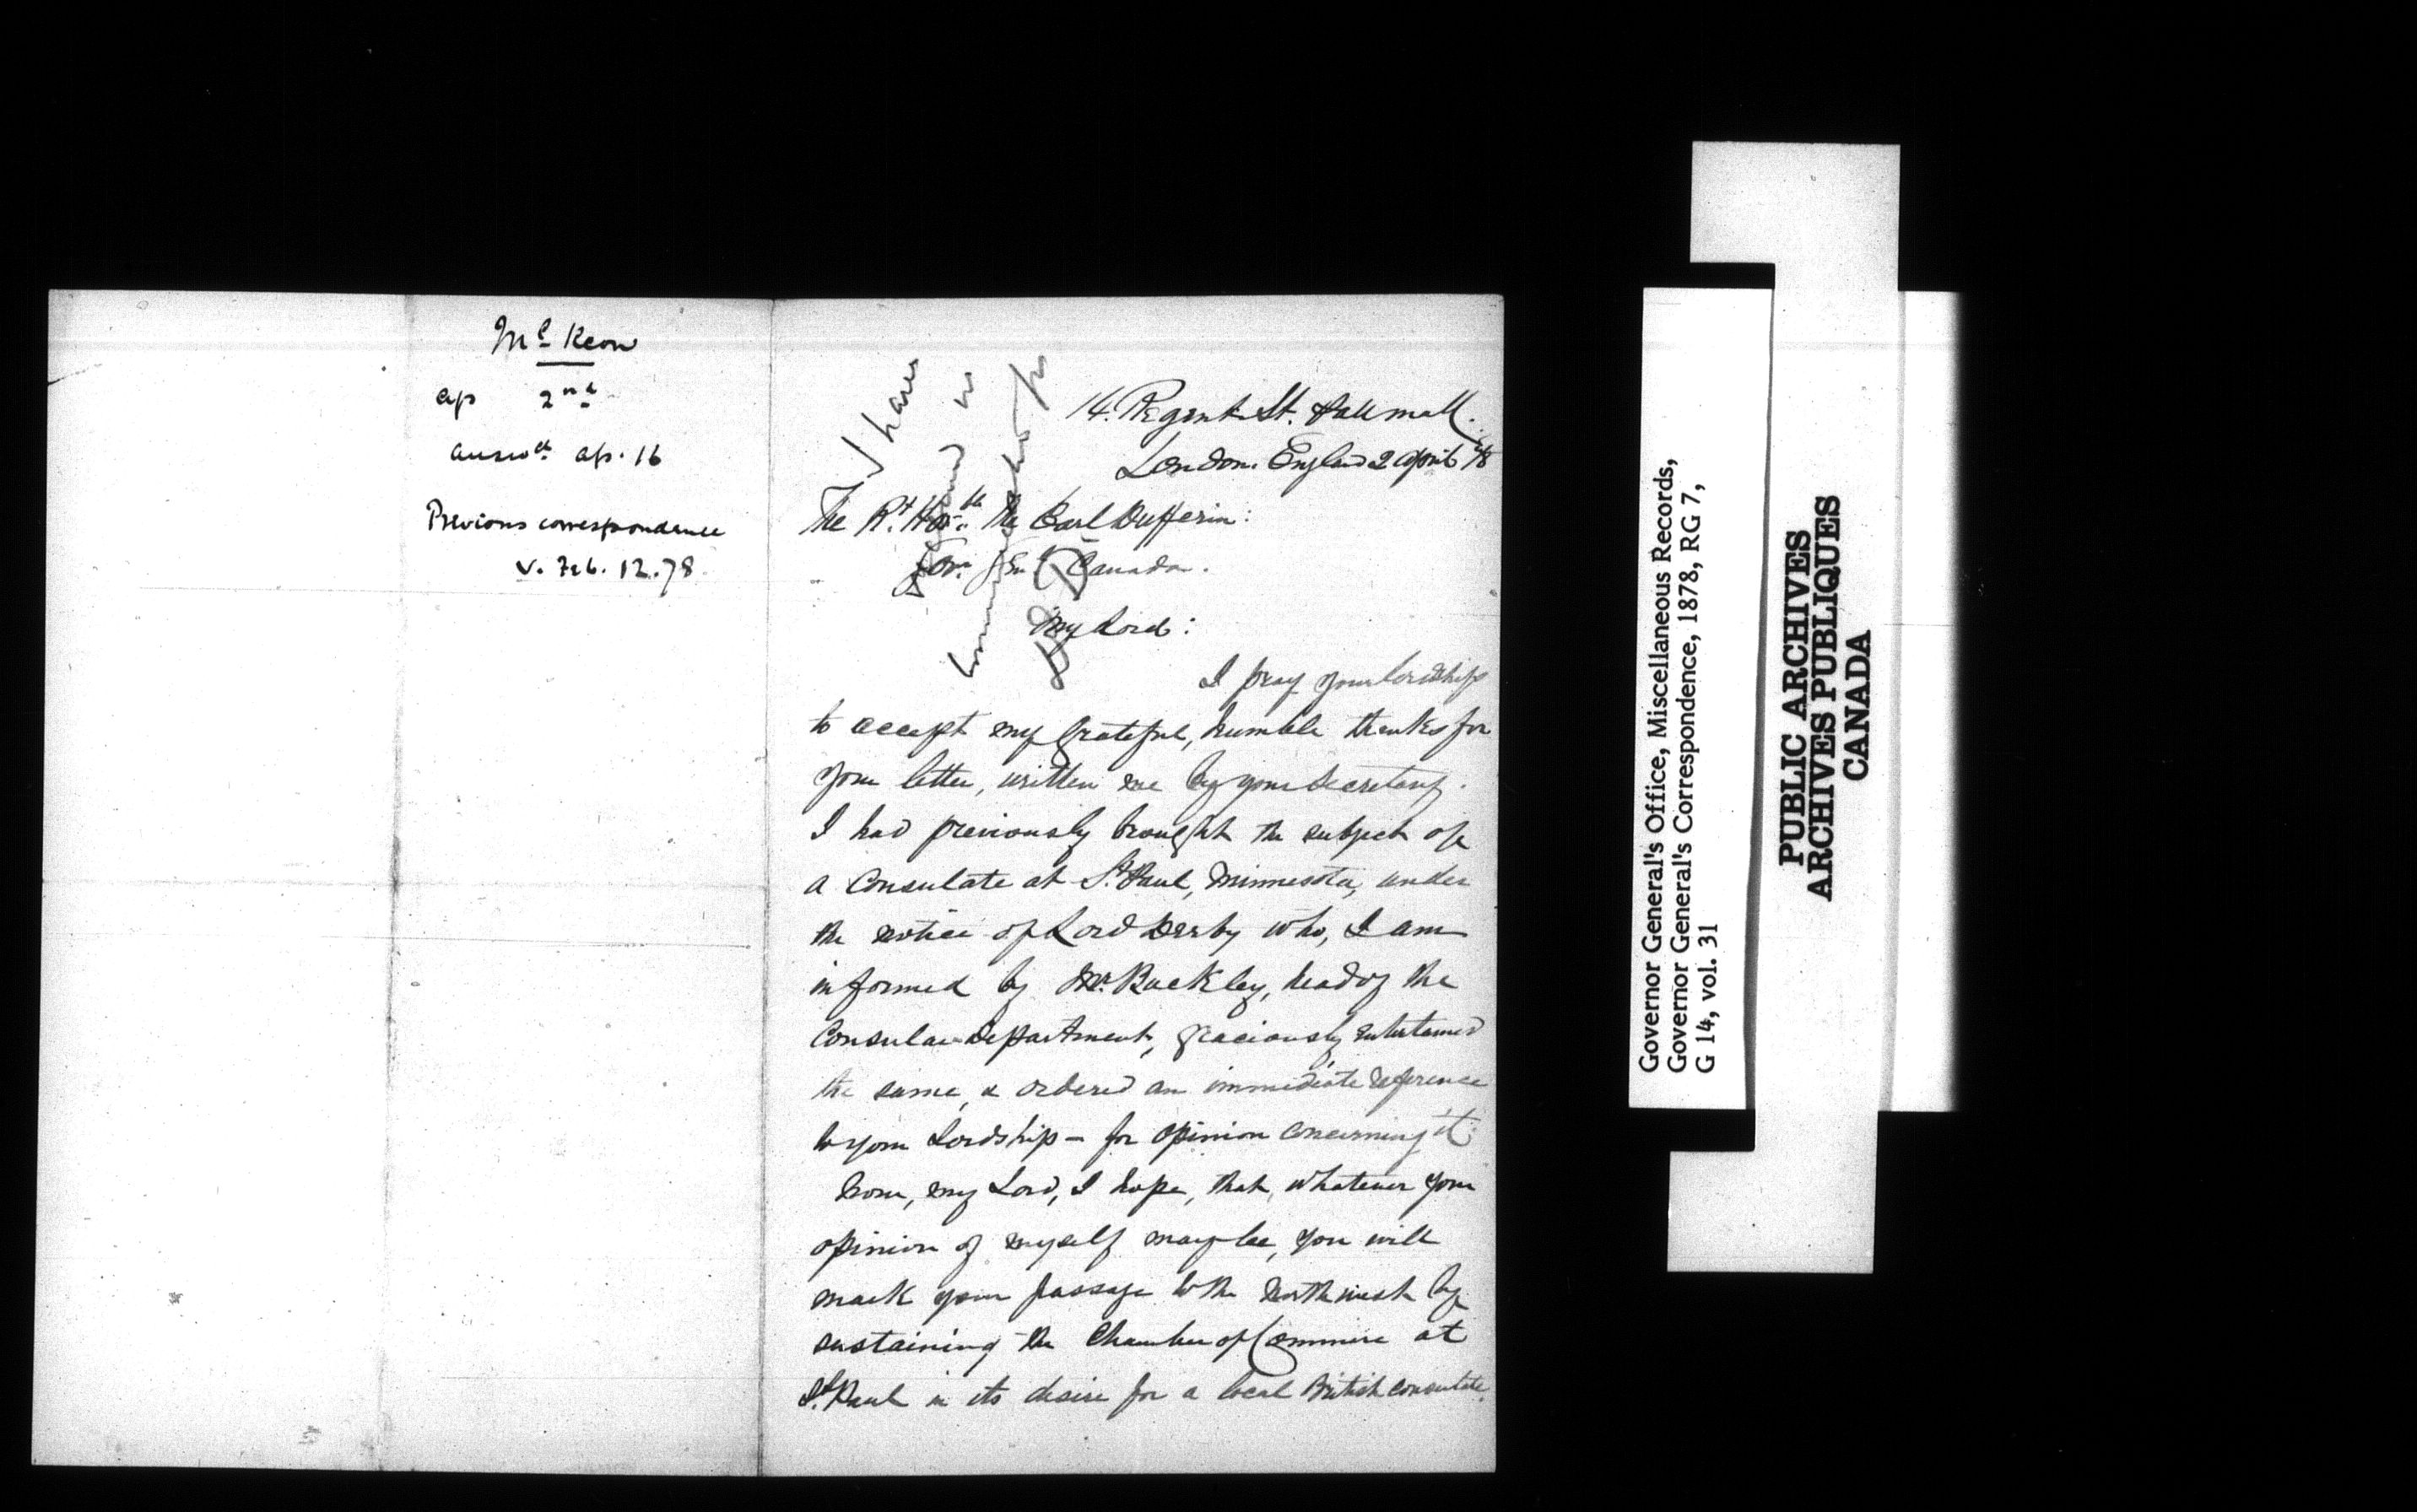 Mc Keon
ap 2nd
answd. ap. 16
Previous correspondence
v. Feb. 12.78
I have
no
14. Regent St. Pall mall.
London. England 2 April /78
The Rt. Honble. the Earl Dufferin:
Gov. Genl. Canada.
My Lord:
I pray your lordship
to accept my grateful, humble thanks for
your letter, written me by your Secretary.
I had previously brought the subject of
a Consulate at St. Paul, Minnesota, under
the notice of Lord Derby who, I am
informed by Mr. Buckley, head of the
Consular Department, graciously entertained
the same, & ordered an immediate reference
to your Lordship - for opinion concerning it.
Now, my Lord, I hope, that, whatever your
opinion of myself may be, you will
mark your passage to the North west by
sustaining the Chamber of Commerce at
St. Paul in its desire for a local British consulate.
Governor General's Office, Miscellaneous Records,
Governor General's Correspondence, 1878, RG 7,
G 14, vol. 31
PUBLIC ARCHIVES
ARCHIVES PUBLIQUES
CANADA